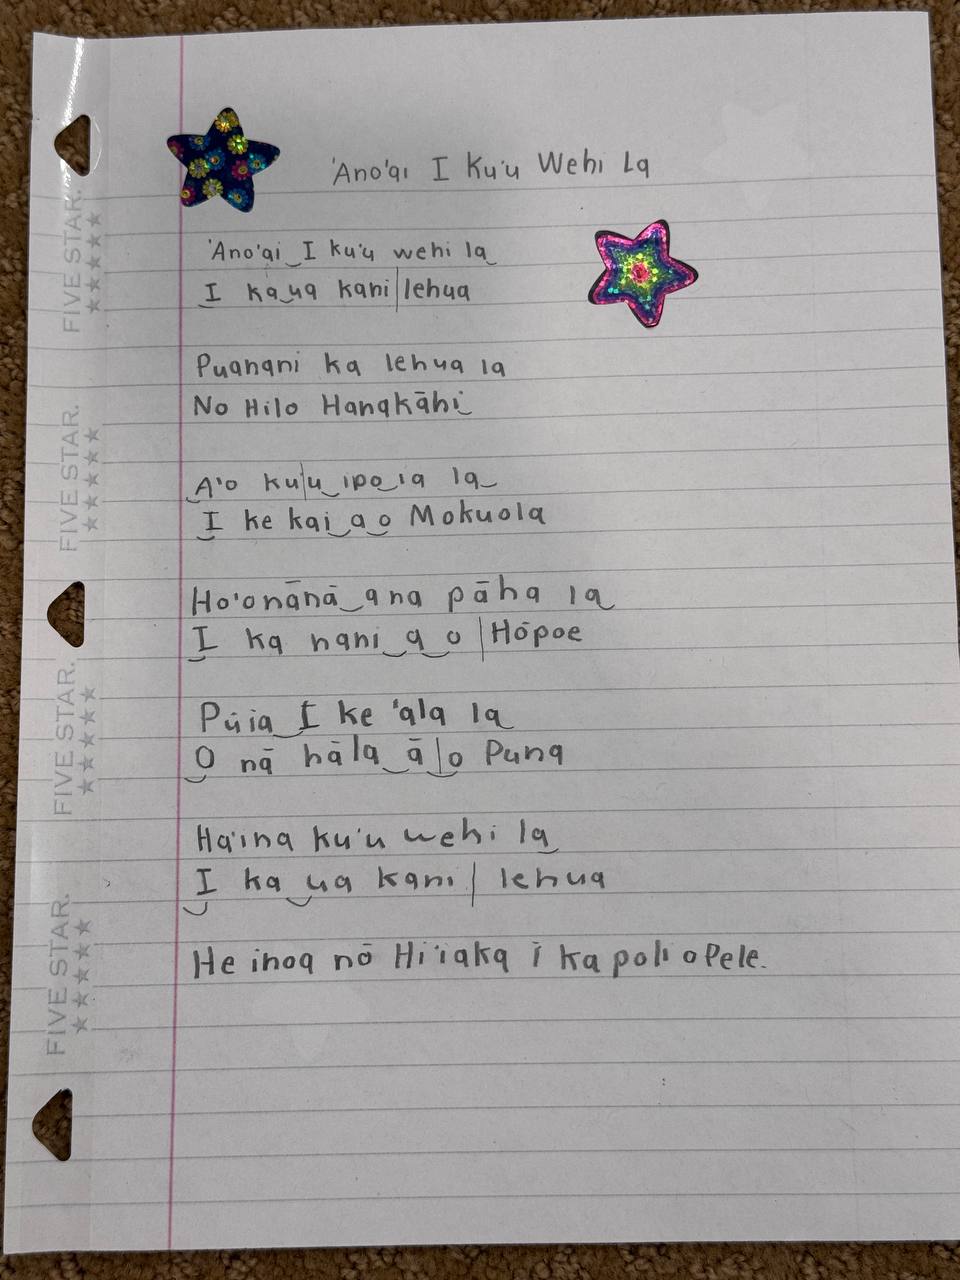 'Ano'ai I Ku'u Wehi La
'Ano'ai I ku'u wehi la
I ka ua kani lehua
Puanani ka lehua la
No Hilo Hanakāhi
A'o ku'u ipo ia la
I ke kai a o Mokuola
Ho'onānā ana pāha la
I ka nani a o Hōpoe
Pūia I ke 'ala la
O nā hāla ā o Puna
Ha'ina ku'u wehi la
I ka ua kani lehua
He inoa nō Hi'iaka i ka poli o Pele.
FIVE STAR.
FIVE STAR.
FIVE STAR.
FIVE STAR.